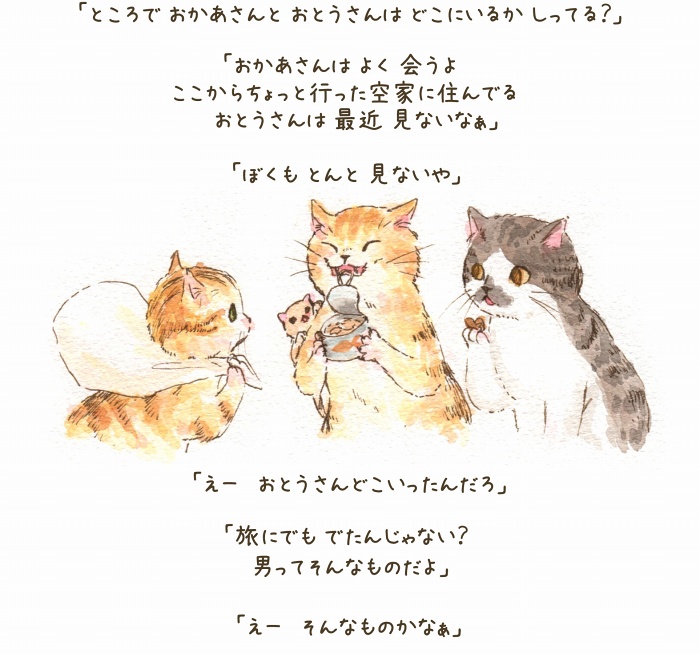 「ところで おかあさんと おとうさんは どこにいるか しってる?」
「おかあさんは よく 会うよ
ここからちょっと行った空家に住んでる
おとうさんは 最近 見ないなぁ」
「ぼくも とんと 見ないや」
「えー おとうさんどこいったんだろ」
「旅にでも でたんじゃない?
男ってそんなものだよ」
「えー そんなものかなぁ」